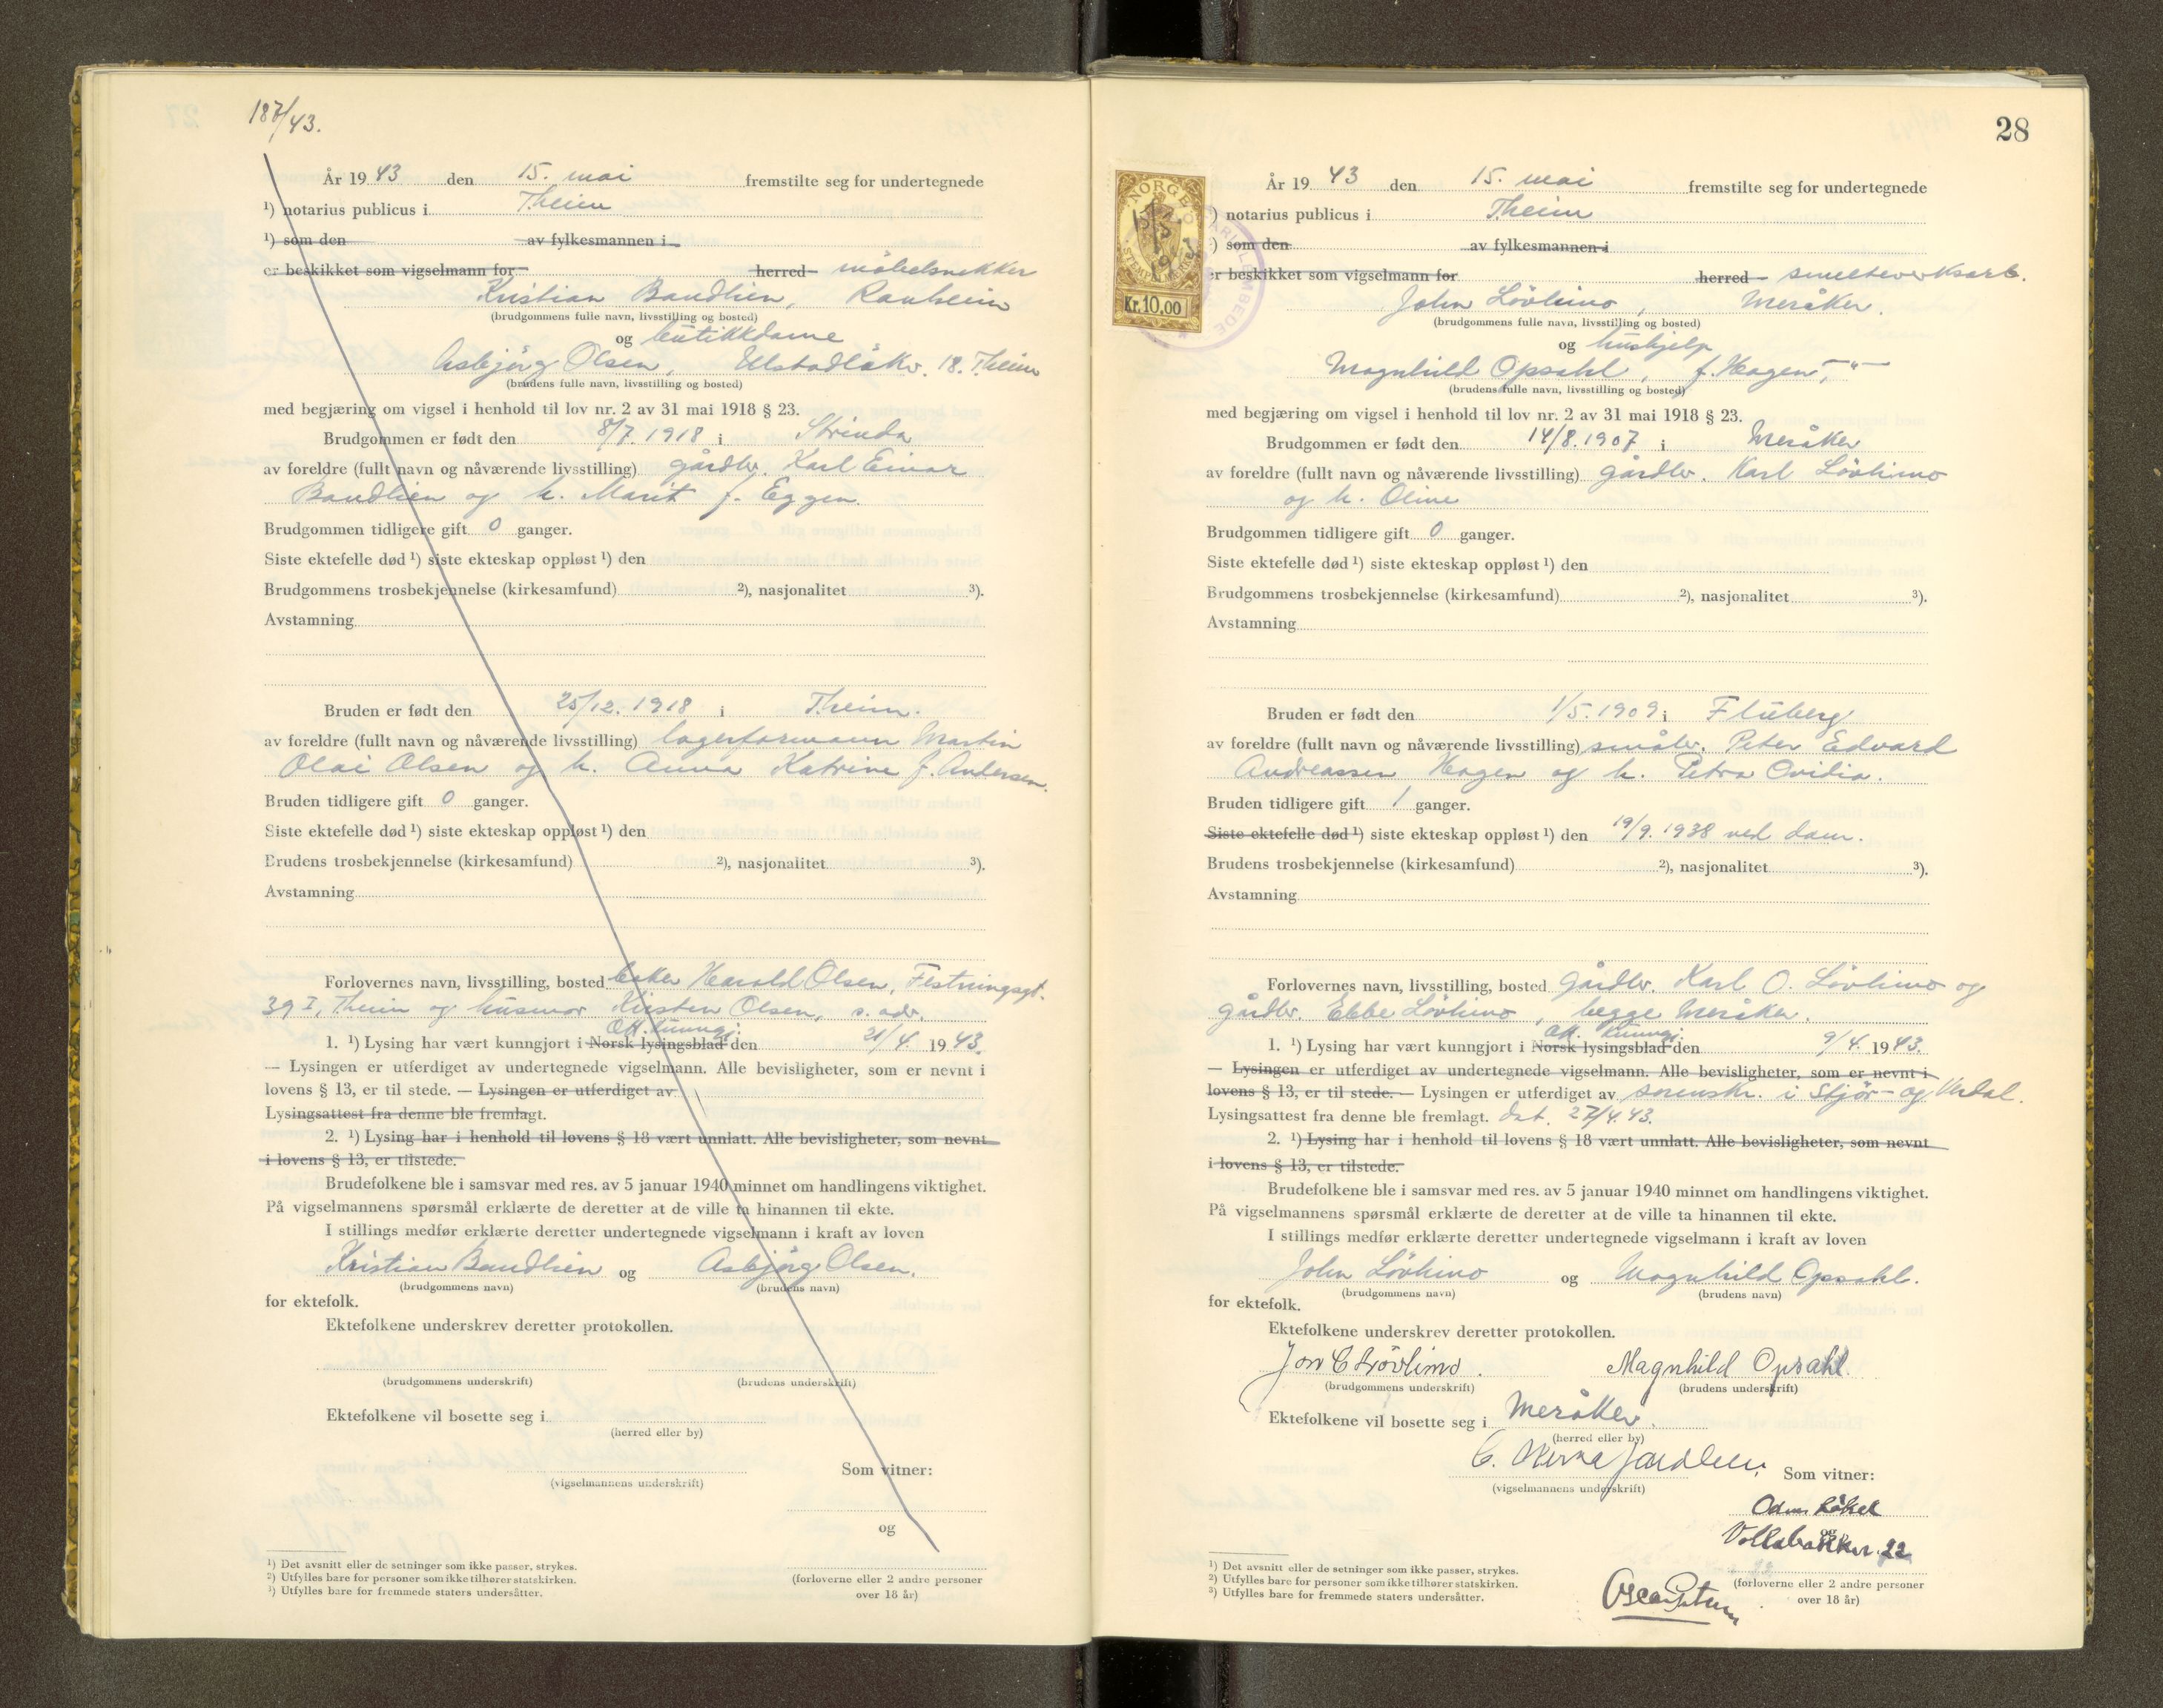 187/43.
År 19 43 den 15. mai fremstilte seg for undertegnede
¹) notarius publicus i T.heim
¹) som den av fylkesmannen i
er beskikket som vigselmann for herred møbelsnekker
Kristian Baudlien, Ranheim
(brudgommens fulle navn, livsstilling og bosted)
og butikkdame
Asbjörg Olsen, Ulstadløkv. 18. T.heim
(brudens fulle navn, livsstilling og bosted)
med begjæring om vigsel i henhold til lov nr. 2 av 31 mai 1918 § 23.
Brudgommen er født den 8/7. 1918 i Strinda
av foreldre (fullt navn og nåværende livsstilling) gårdbr. Karl Einar
Baudlien og h. Marit f. Eggen.
Brudgommen tidligere gift 0 ganger.
Siste ektefelle død ¹) siste ekteskap oppløst ¹) den
Brudgommens trosbekjennelse (kirkesamfund) ²), nasjonalitet ³).
Avstamning
Bruden er født den 25/12. 1918 i T.heim.
av foreldre (fullt navn og nåværende livsstilling) lagerformann Martin
Olai Olsen og h. Anna Katrine f. Andersen.
Bruden tidligere gift 0 ganger.
Siste ektefelle død ¹) siste ekteskap oppløst ¹) den
Brudens trosbekjennelse (kirkesamfund) ²), nasjonalitet ³).
Avstamning
Forlovernes navn, livsstilling, bosted baker Harald Olsen, Festningsgt.
39 I, Theim og husmor Kirsten Olsen, s. adr.
Off. kunngj.
1. ¹) Lysing har vært kunngjort i Norsk lysingsblad den 21/4. 19 43.
— Lysingen er utferdiget av undertegnede vigselmann. Alle bevisligheter, som er nevnt i
lovens § 13, er til stede. — Lysingen er utferdiget av
Lysingsattest fra denne ble fremlagt.
2. ¹) Lysing har i henhold til lovens § 18 vært unnlatt. Alle bevisligheter, som nevnt
i lovens § 13, er tilstede.
Brudefolkene ble i samsvar med res. av 5 januar 1940 minnet om handlingens viktighet.
På vigselmannens spørsmål erklærte de deretter at de ville ta hinannen til ekte.
I stillings medfør erklærte deretter undertegnede vigselmann i kraft av loven
Kristian Baudlien og Asbjörg Olsen.
(brudgommens navn) (brudens navn)
for ektefolk.
Ektefolkene underskrev deretter protokollen.
(brudgommens underskrift) (brudens underskrift)
Ektefolkene vil bosette seg i
(herred eller by)
Som vitner:
(vigselmannens underskrift)
og
(forloverne eller 2 andre personer
over 18 år)
¹) Det avsnitt eller de setninger som ikke passer, strykes.
²) Utfylles bare for personer som ikke tilhører statskirken.
³) Utfylles bare for fremmede staters undersåtter.
28
NORGE
Kr. 10,00
År 19 43 den 15. mai fremstilte seg for undertegnede
) notarius publicus i T.heim
) som den av fylkesmannen i
er beskikket som vigselmann for herred smelteverksarb.
John Lövlimo, Meråker.
(brudgommens fulle navn, livsstilling og bosted)
og hushjelp
Magnhild Opsahl, f. Hagen, — " —
(brudens fulle navn, livsstilling og bosted)
med begjæring om vigsel i henhold til lov nr. 2 av 31 mai 1918 § 23.
Brudgommen er født den 14/8. 1907 i Meråker
av foreldre (fullt navn og nåværende livsstilling) gårdbr. Karl Lövlimo
og h. Oline
Brudgommen tidligere gift 0 ganger.
Siste ektefelle død ¹) siste ekteskap oppløst ¹) den
Brudgommens trosbekjennelse (kirkesamfund) ²), nasjonalitet ³).
Avstamning
Bruden er født den 1/5. 1909 i Fluberg
av foreldre (fullt navn og nåværende livsstilling) småbr. Peter Edvard
Andreassen Hagen og h. Petra Ovidia.
Bruden tidligere gift 1 ganger.
Siste ektefelle død ¹) siste ekteskap oppløst ¹) den 19/9. 1938 ved dom.
Brudens trosbekjennelse (kirkesamfund) ²), nasjonalitet ³).
Avstamning
Forlovernes navn, livsstilling, bosted gårdbr. Karl O. Lövlimo og
gårdbr. Ebbe Lövlimo, begge Meråker.
Off. kunngj.
1. ¹) Lysing har vært kunngjort i Norsk lysingsblad den 9/4. 19 43.
— Lysingen er utferdiget av undertegnede vigselmann. Alle bevisligheter, som er nevnt i
lovens § 13, er til stede. — Lysingen er utferdiget av sorenskr. i Stjør- og Verdal.
Lysingsattest fra denne ble fremlagt. dat. 27/4. 43.
2. ¹) Lysing har i henhold til lovens § 18 vært unnlatt. Alle bevisligheter, som nevnt
i lovens § 13, er tilstede.
Brudefolkene ble i samsvar med res. av 5 januar 1940 minnet om handlingens viktighet.
På vigselmannens spørsmål erklærte de deretter at de ville ta hinannen til ekte.
I stillings medfør erklærte deretter undertegnede vigselmann i kraft av loven
John Lövlimo og Magnhild Opsahl.
(brudgommens navn) (brudens navn)
for ektefolk.
Ektefolkene underskrev deretter protokollen.
Jon C Lövlimo. Magnhild Opsahl.
(brudgommens underskrift) (brudens underskrift)
Ektefolkene vil bosette seg i Meråker.
(herred eller by)
Som vitner:
(vigselmannens underskrift)
og
(forloverne eller 2 andre personer
over 18 år)
¹) Det avsnitt eller de setninger som ikke passer, strykes.
²) Utfylles bare for personer som ikke tilhører statskirken.
³) Utfylles bare for fremmede staters undersåtter.